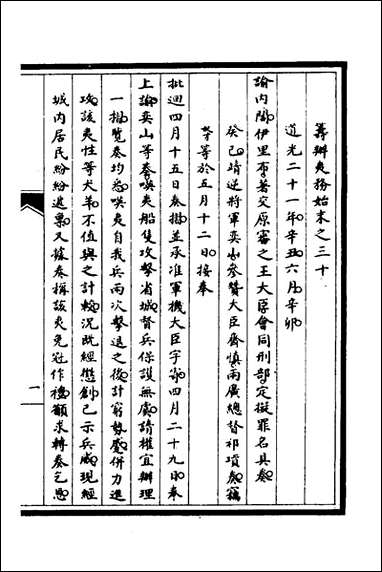 籌辦夷務始末之三十
道光二十一年辛丑六月辛卯
諭內閣伊里布著交原審之王大臣會同刑部定擬罪名具奏
癸巳靖逆將軍奕山參贊大臣齊慎兩廣總督祁𡎴奏竊
等於五月十二日接奉
批迴四月十五日奏摺並承准軍機大臣字寄四月二十九日奉
上諭奕山等奏嘆夷船隻攻擊省城督兵保護無虞請權宜辦理
一摺覽奏均悉嘆夷自我兵兩次擊退之後計窮勢蹙併力進
攻該夷性等犬羊不值與之計較況既經懲創已示兵威現經
城內居民紛紛遞稟又據奏稱該夷免冠作禮籲求轉奏乞恩
一